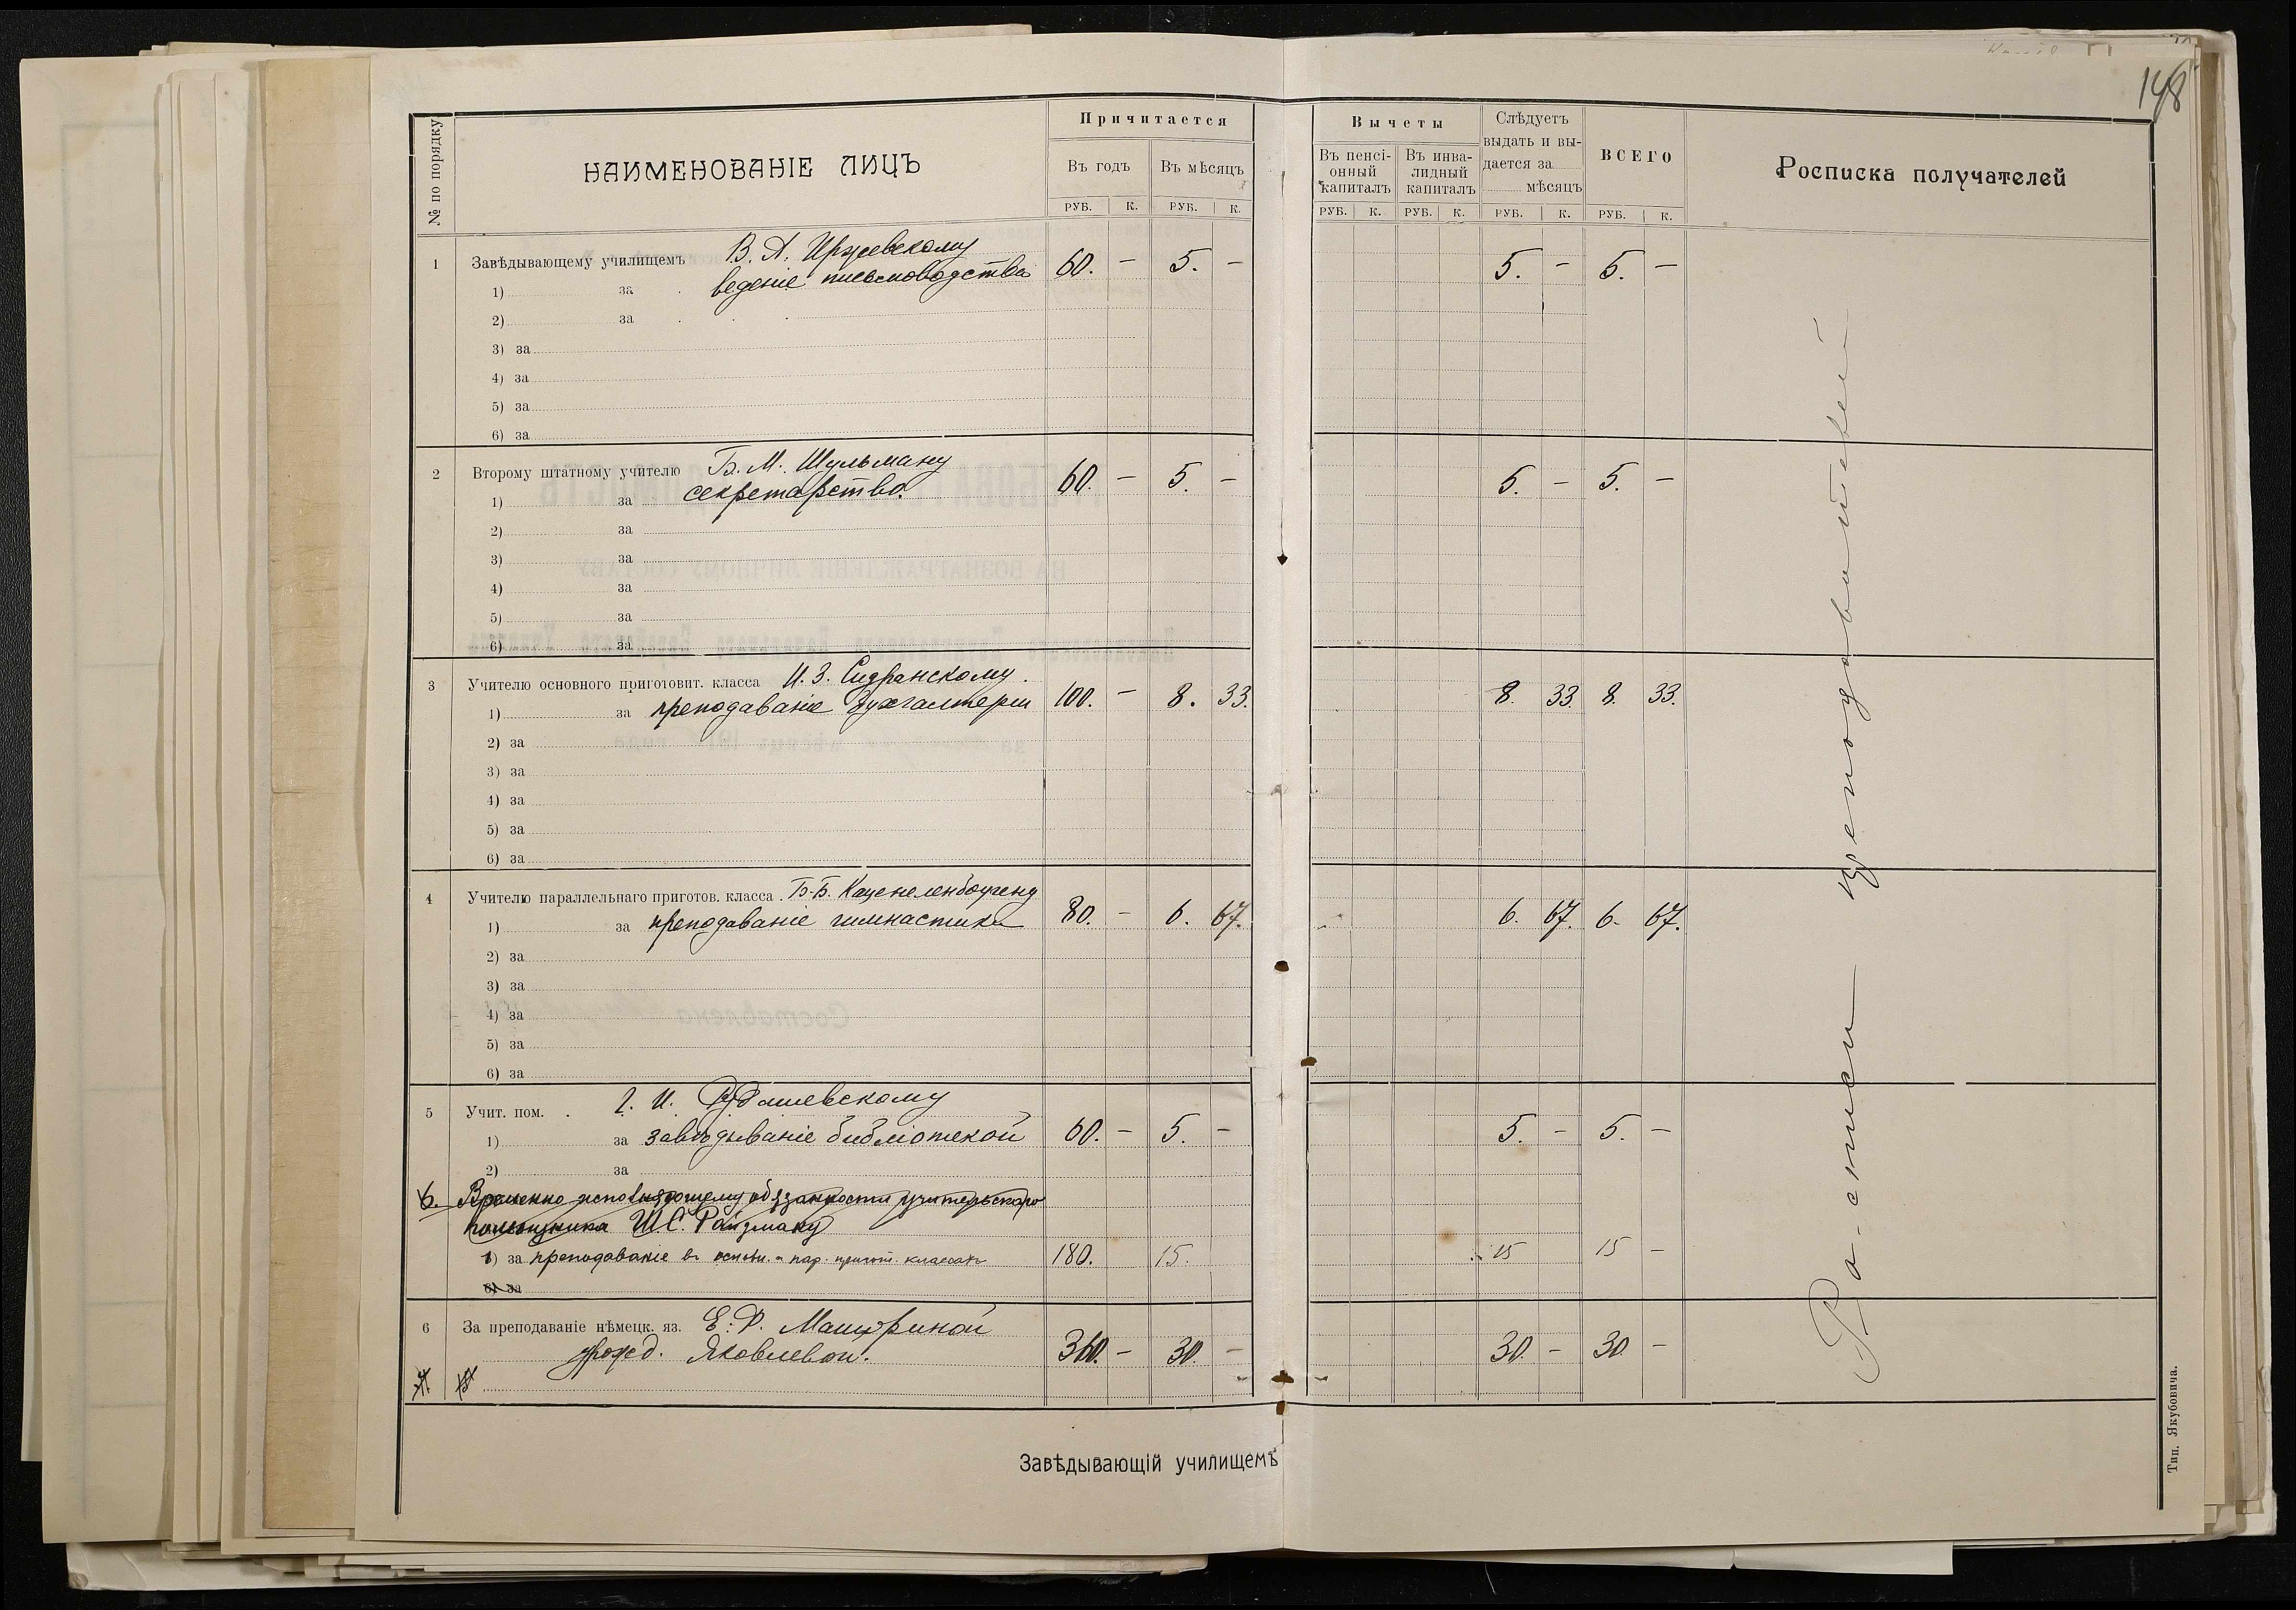 148
№ по порядку
НАИМЕНОВАНІЕ ЛИЦЪ
Причитается
Въ годъ
Въ мѣсяцъ
РУБ. К. РУБ. К.
Вычеты
Въ пенсі-
онный
капиталъ
Въ инва-
лидный
капиталъ
Слѣдуетъ
выдать и вы-
дается за
мѣсяцъ
ВСЕГО
РУБ. К. РУБ. К. РУБ. К. РУБ. К.
Росписка получателей
1 Завѣдывающему училищемъ В. А. Иржевскому
1) за веденіе письмоводства 60. — 5. — 5. — 5. —
2) за
3) за
4) за
5) за
6) за
2 Второму штатному учителю Б. М. Шульману
1) за секретарство. 60. — 5. — 5. — 5. —
2) за
3) за
4) за
5) за
6) за
3 Учителю основного приготовит. класса И. З. Сидранскому.
1) за преподаваніе бухгалтеріи 100. — 8. 33. 8. 33. 8. 33.
2) за
3) за
4) за
5) за
6) за
4 Учителю параллельнаго приготов. класса. Б-Б. Каценеленбоугену
1) за преподаваніе гимнастики 80. — 6. 67. 6. 67. 6. 67.
2) за
3) за
4) за
5) за
6) за
5 Учит. пом. Г. И. Рудашевскому
1) за завѣдываніе библіотекой 60. — 5. — 5. — 5. —
2) за
6. Временно исполняющему обязанности учительскаго
помощника Ш. С. Райзману
1) за преподаваніе въ основн. и пар. пригот. классахъ 180. 15. 15 15 —
за
6 За преподаваніе нѣмецк. яз. Е. Ф.
урожд. Яковлевой. 360. — 30. — 30. — 30 —
преподавателей
Завѣдывающій училищемъ
Тип. Якубовича.